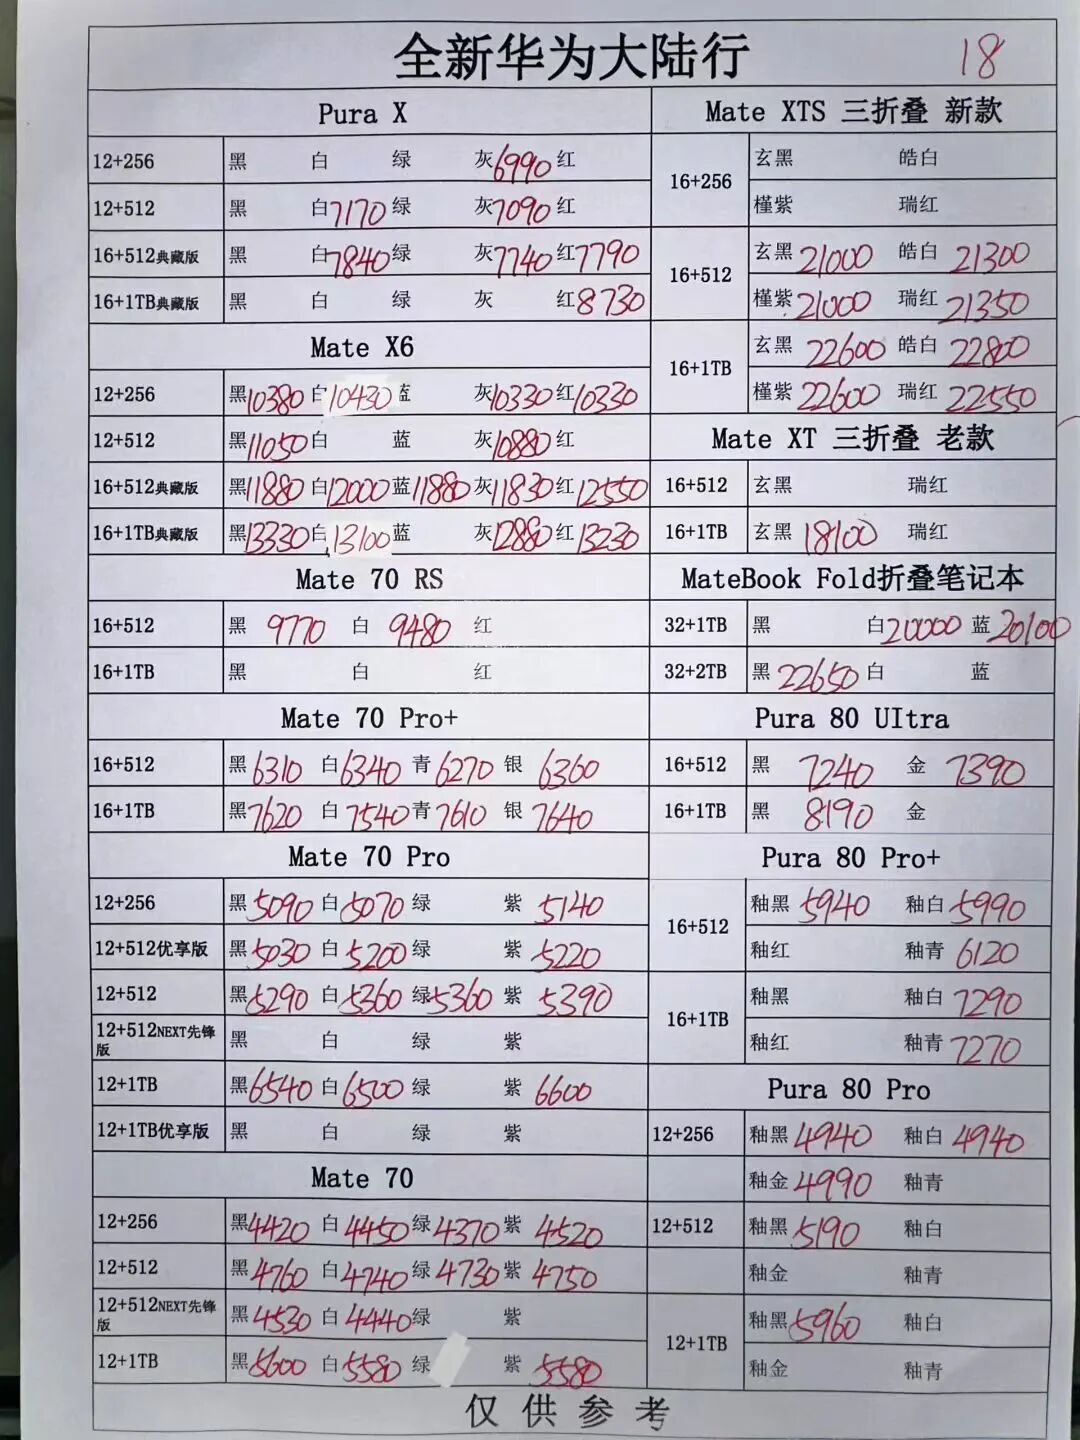 全新华为大陆行 18
Pura X
12+256 黑 白 绿 灰6990 红
12+512 黑 白7170 绿 灰7090 红
16+512典藏版 黑 白7840 绿 灰7740 红7790
16+1TB典藏版 黑 白 绿 灰 红8730
Mate X6
12+256 黑10380 白10430 蓝 灰10330 红10330
12+512 黑11050 白 蓝 灰10880 红
16+512典藏版 黑11880 白12000 蓝11880 灰11830 红12550
16+1TB典藏版 黑13330 白13100 蓝 灰12880 红13230
Mate 70 RS
16+512 黑 9770 白 9480 红
16+1TB 黑 白 红
Mate 70 Pro+
16+512 黑6310 白6340 青6270 银 6360
16+1TB 黑7620 白7540 青7610 银 7640
Mate 70 Pro
12+256 黑5090 白5070 绿 紫 5140
12+512优享版 黑5030 白5200 绿 紫 5220
12+512 黑5290 白5360 绿5360 紫 5390
12+512NEXT先锋版 黑 白 绿 紫
12+1TB 黑6540 白6500 绿 紫 6600
12+1TB优享版 黑 白 绿 紫
Mate 70
12+256 黑4420 白4450 绿4370 紫 4520
12+512 黑4760 白4740 绿4730 紫 4750
12+512NEXT先锋版 黑4530 白4440 绿 紫
12+1TB 黑5600 白5580 绿 紫 5580
Mate XTS 三折叠 新款
16+256 玄黑 皓白
槿紫 瑞红
16+512 玄黑 21000 皓白 21300
槿紫 21000 瑞红 21350
16+1TB 玄黑 22600 皓白 22800
槿紫 22600 瑞红 22550
Mate XT 三折叠 老款
16+512 玄黑 瑞红
16+1TB 玄黑 18100 瑞红
MateBook Fold折叠笔记本
32+1TB 黑 白20000 蓝 20100
32+2TB 黑 22650 白 蓝
Pura 80 UItra
16+512 黑 7240 金 7390
16+1TB 黑 8190 金
Pura 80 Pro+
16+512 釉黑 5940 釉白 5990
釉红 釉青 6120
16+1TB 釉黑 釉白 7290
釉红 釉青 7270
Pura 80 Pro
12+256 釉黑 4940 釉白 4940
釉金 4990 釉青
12+512 釉黑 5190 釉白
釉金 釉青
12+1TB 釉黑 5960 釉白
釉金 釉青
仅供参考